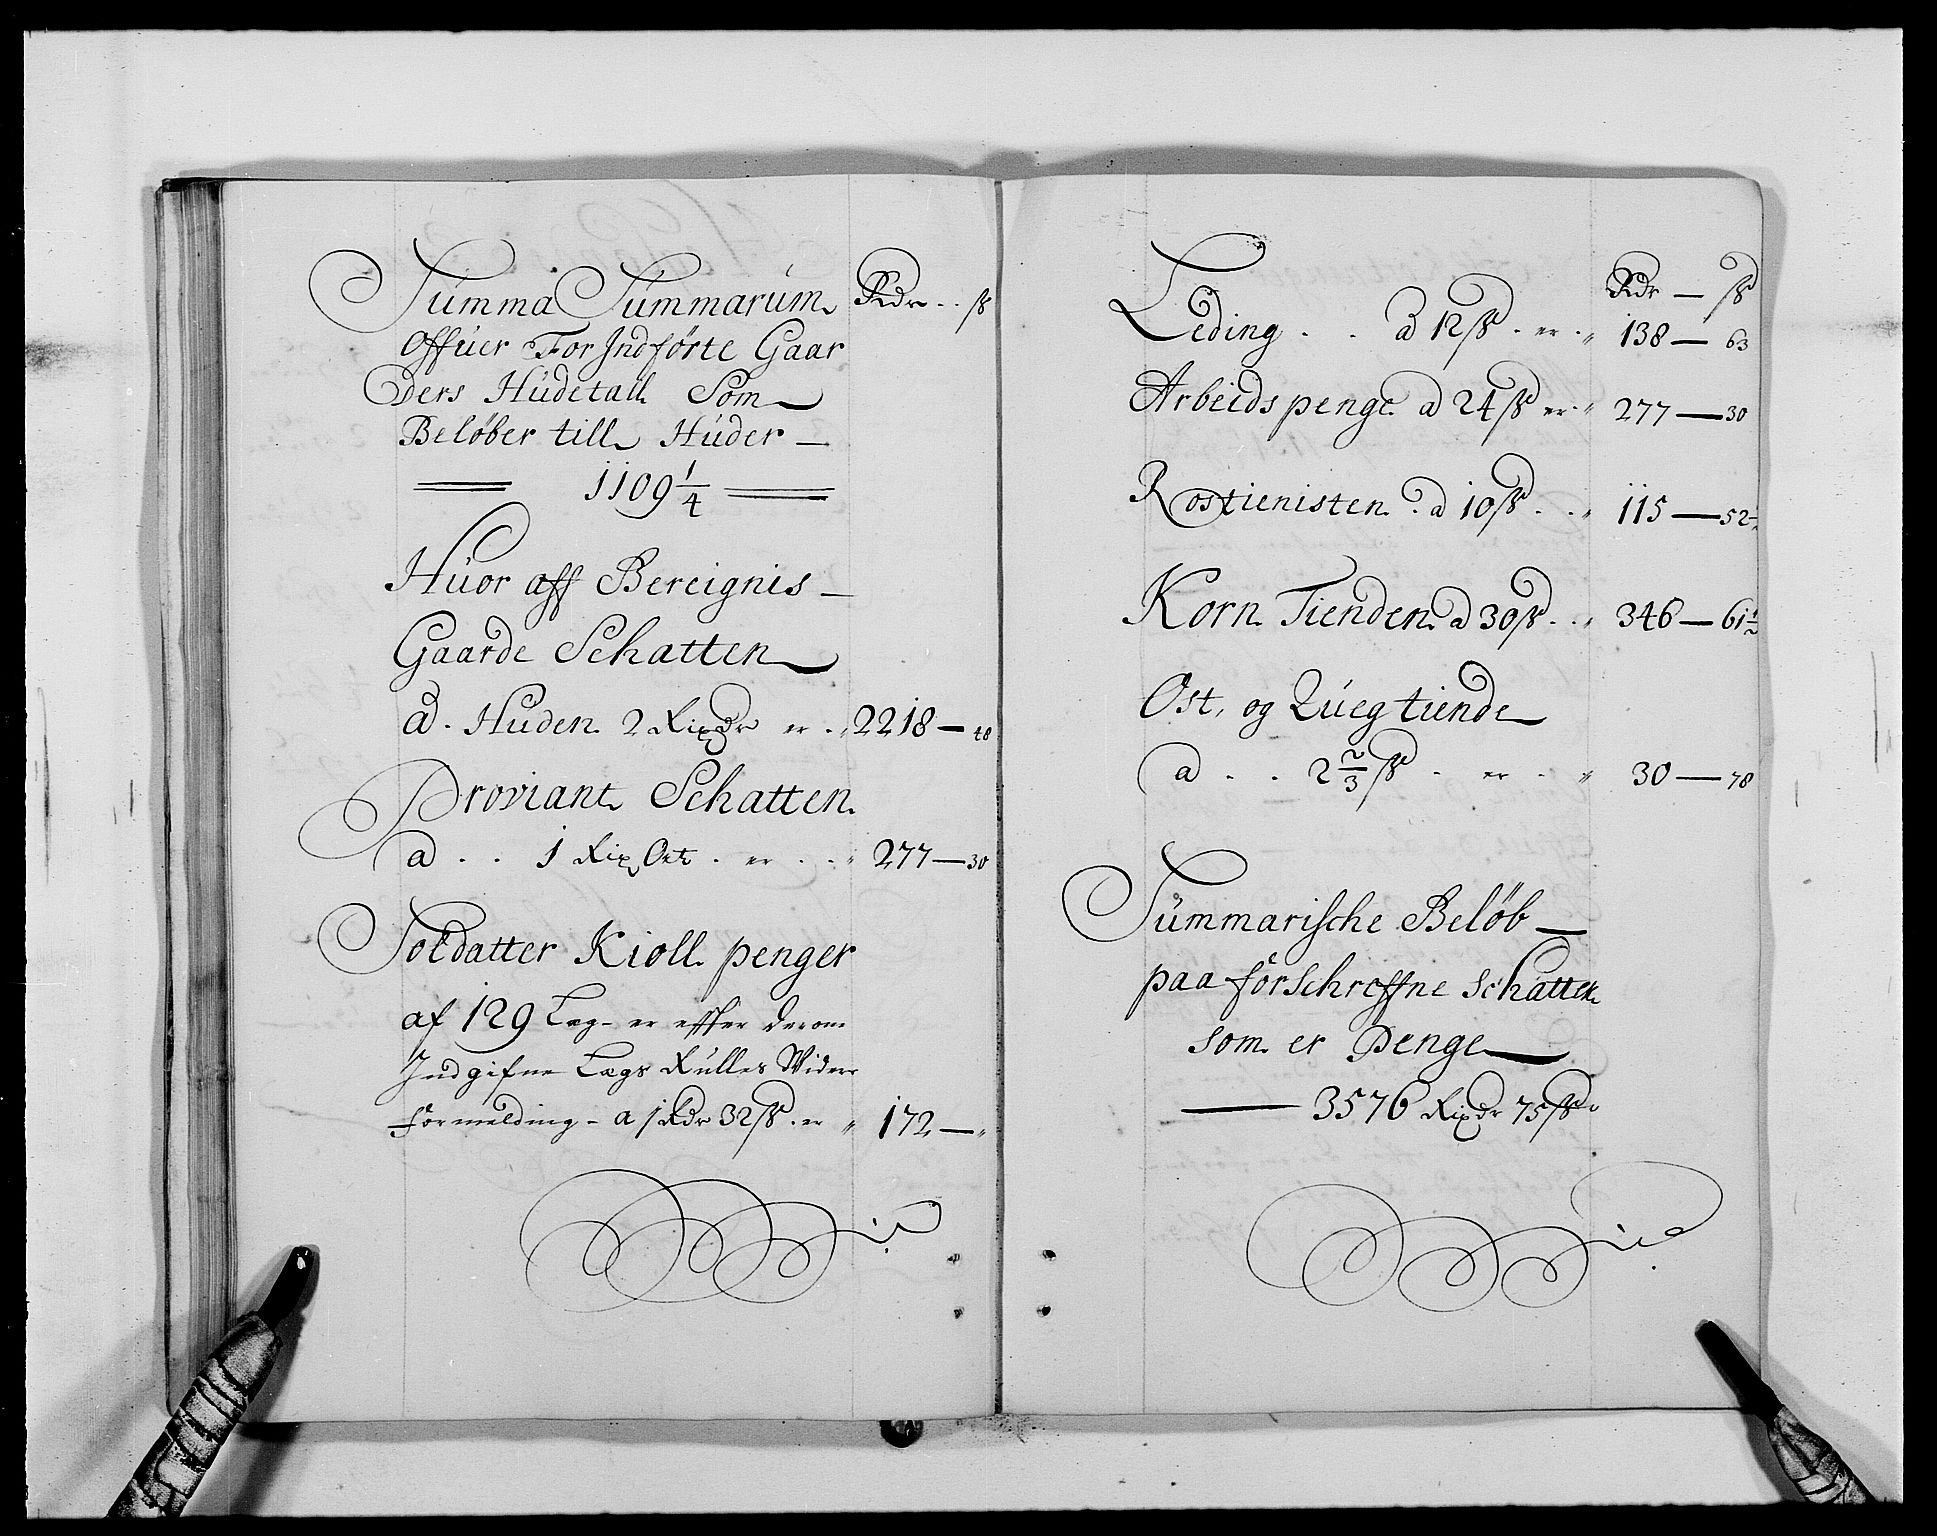 Summa Summarum Rdr - ß
Offuer For Indførte Gaar
Ders Hüdetall Som
Beløber till Hüder —
1109 1/4
Hüor aff Bereignis —
Gaarde Schatten
a Huden 2 Rixdr er 2218 — 48
Proviant Schatten
a . . 1 Rix Ort . er . . 277 — 30
Soldatter Kioll penger
af 129 Læg - er effter derom
Indgifne Lægs Rulles Widere
formelding - a 1 Rdr 32 ß er 172 — "
Rdr — ß
Leding . . a 12 ß . er . 138 — 63
Arbeids penge a 24 ß er 277 — 30
Rostienisten a 10 ß . . 115 — 52
Korn Tienden a 30 ß . . 346 — 61 1/2
Ost, og Quegtiende
a . . 2 2/3 ß . er . 30 — 78
Summarische Beløb —
paa forschreffne schatter
som er Penge
3576 Rixdr 75 ß